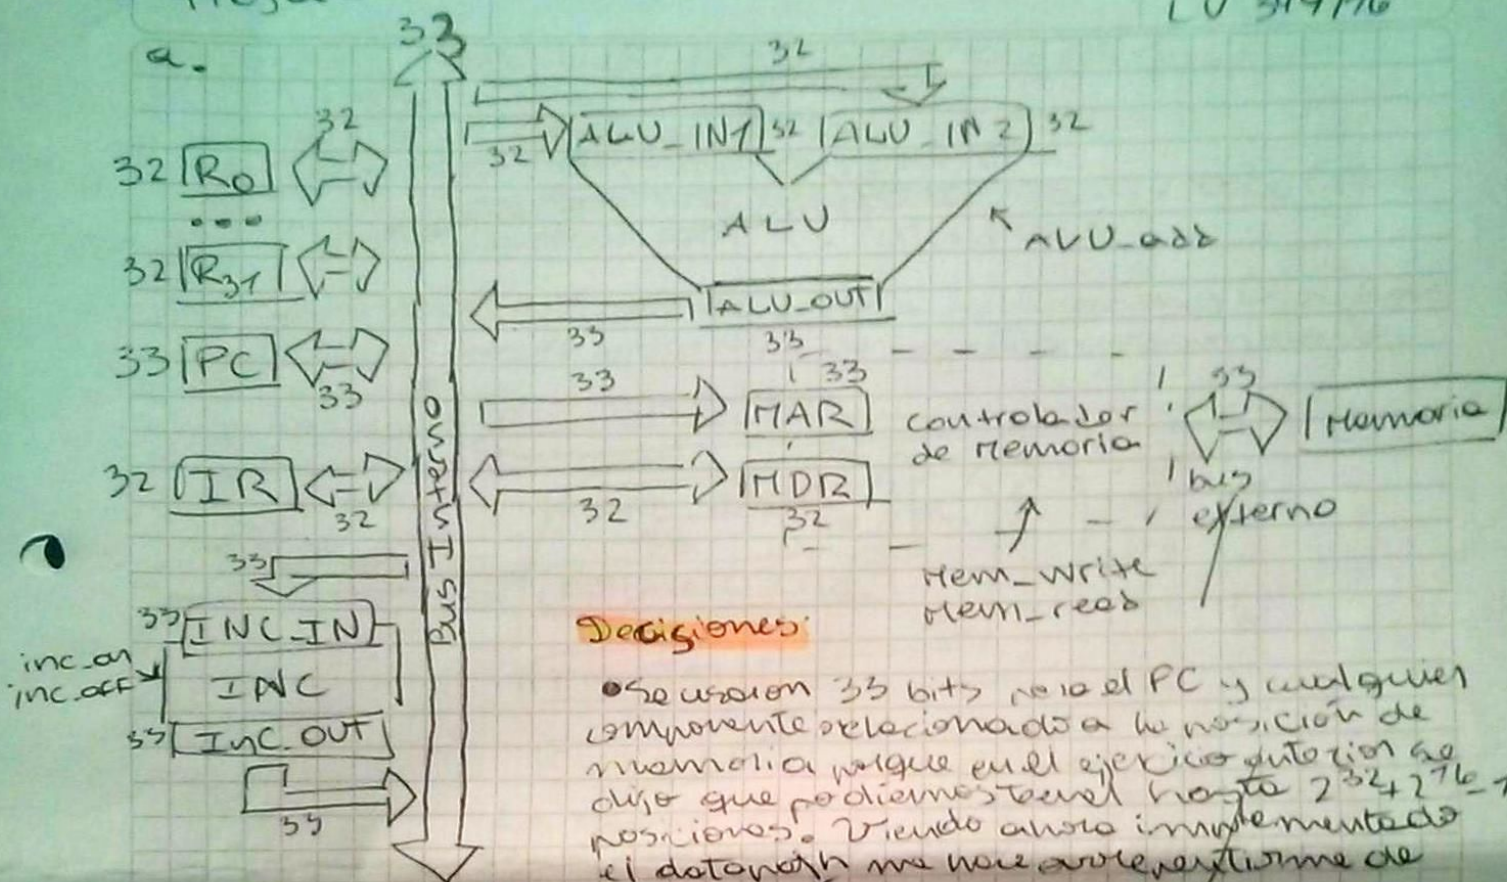 a.
33
32
32
ALU_IN1 32 ALU_IN2 32
32
32 R0
...
32 R31
ALU
ALU_add
ALU_OUT
33
33
33 PC
33
33
33
MAR
controlador
de memoria
33
Memoria
32 IR
32
MDR
32
32
bus
externo
Bus Interno
Mem_write
Mem_read
33
33 INC_IN
inc_on
inc_off
INC
33 INC_OUT
33
Decisiones:
• Se usaron 33 bits para el PC y cualquier
componente relacionado a la posición de
memoria porque en el ejercicio anterior se
dijo que podíamos tener hasta 2^32+2^16-1
posiciones. Viendo ahora implementado
el datapath me hace arrepentirme de